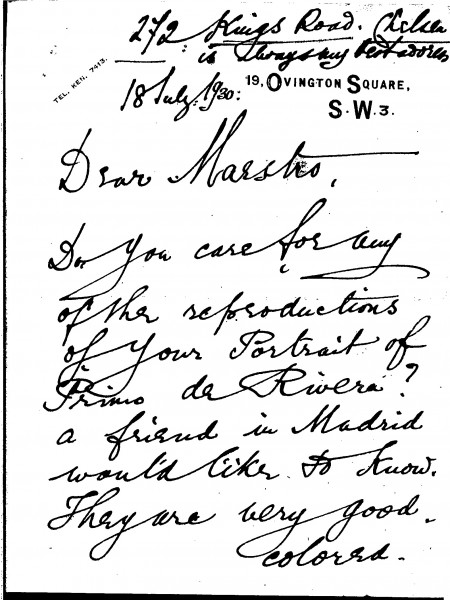 272: Kings Road. Chelsea
is always my best address
TEL. KEN. 7413.
18 July: 1930:
19, OVINGTON SQUARE,
S.W.3.
Dear Maestro,
Do you care for any
of the reproductions
of Your Portrait of
Primo de Rivera?
a friend in Madrid
would like to know.
They are very good.
colored.